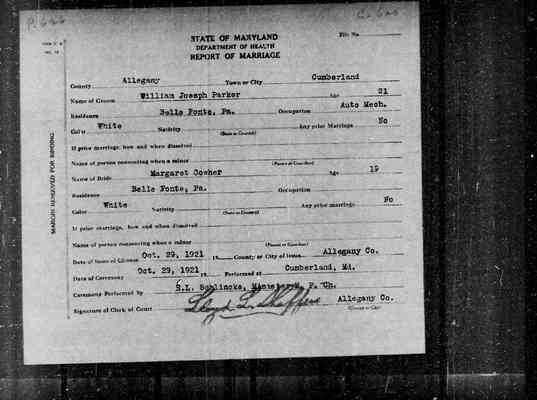 P. 626
STATE OF MARYLAND
DEPARTMENT OF HEALTH
REPORT OF MARRIAGE
File No.
County Allegany Town or City Cumberland
Name of Groom William Joseph Parker Age 21
Residence Belle Fonte, Pa. Occupation Auto Mech.
Color White Nativity (State or Country) Any prior Marriage No
If prior marriage, how and when dissolved
Name of person consenting when a minor (Parent or Guardian)
Name of Bride Margaret Cosher Age 19
Residence Belle Fonte, Pa. Occupation
Color White Nativity (State or Country) Any prior marriage No
If prior marriage, how and when dissolved
Name of person consenting when a minor (Parent or Guardian)
Date of Issue of License Oct. 29, 1921 19 County or City of Issue Allegany Co.
Date of Ceremony Oct. 29, 1921 19 Performed at Cumberland, Md.
Ceremony Performed by Minister M. P. Ch.
Signature of Clerk of Court Lloyd L. Shaffer Allegany Co.
(County or City)
MARGIN RESERVED FOR BINDING